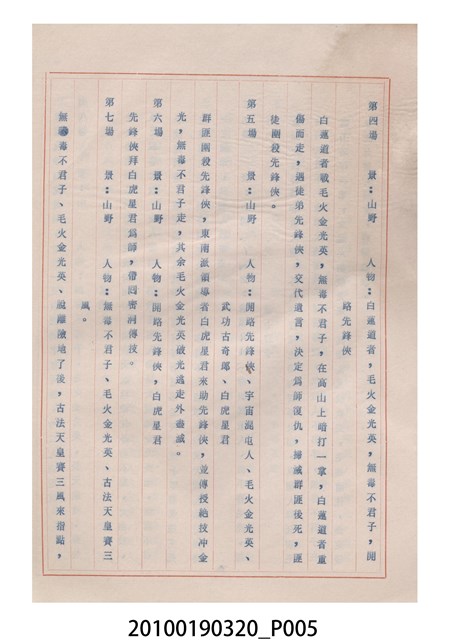 第四場　景：山野　人物：白蓮道者，毛火金光英，無毒不君子，開
路先鋒俠
白蓮道者戰毛火金光英，無毒不君子，在高山上暗打一掌，白蓮道者重
傷而走，遇徒弟先鋒俠，交代遺言，決定爲師復仇，掃滅群匪後死，匪
徒圍殺先鋒俠。
第五場　景：山野　人物：開路先鋒俠、宇宙混屯人、毛火金光英、
武功古奇郎、白虎星君
群匪圍殺先鋒俠，東南派領導者白虎星君來助先鋒俠，並傳授絕技冲金
光，無毒不君子走，其余毛火金光英破光逃走外盡滅。
第六場　景：山野　人物：開路先鋒俠，白虎星君
先鋒俠拜白虎星君爲師，帶囘密洞傳技。
第七場　景：山野　人物：無毒不君子、毛火金光英、古法天皇賽三
風。
無毒不君子、毛火金光英、脫離險地了後，古法天皇賽三風來指點，
20100190320_P005